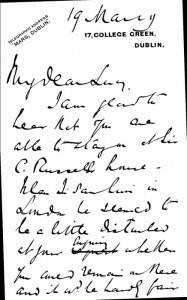 19 Mar 9
TELEGRAPHIC ADDRESS
MARS, DUBLIN.
17, COLLEGE GREEN,
DUBLIN.
My dear
I am glad to
hear that you are
able to stay at Sir
C. Russell's house.
When I saw him in
London he seemed to
be a little disturbed
at your inquiry whether
you could remain on there
and it will be hardly fair